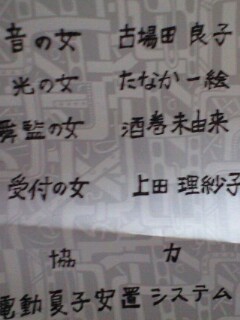 音の女 古場田 良子
光の女 たなか一絵
舞監の女 酒巻未由来
受付の女 上田 理紗子
協 力
電動夏子安置システム